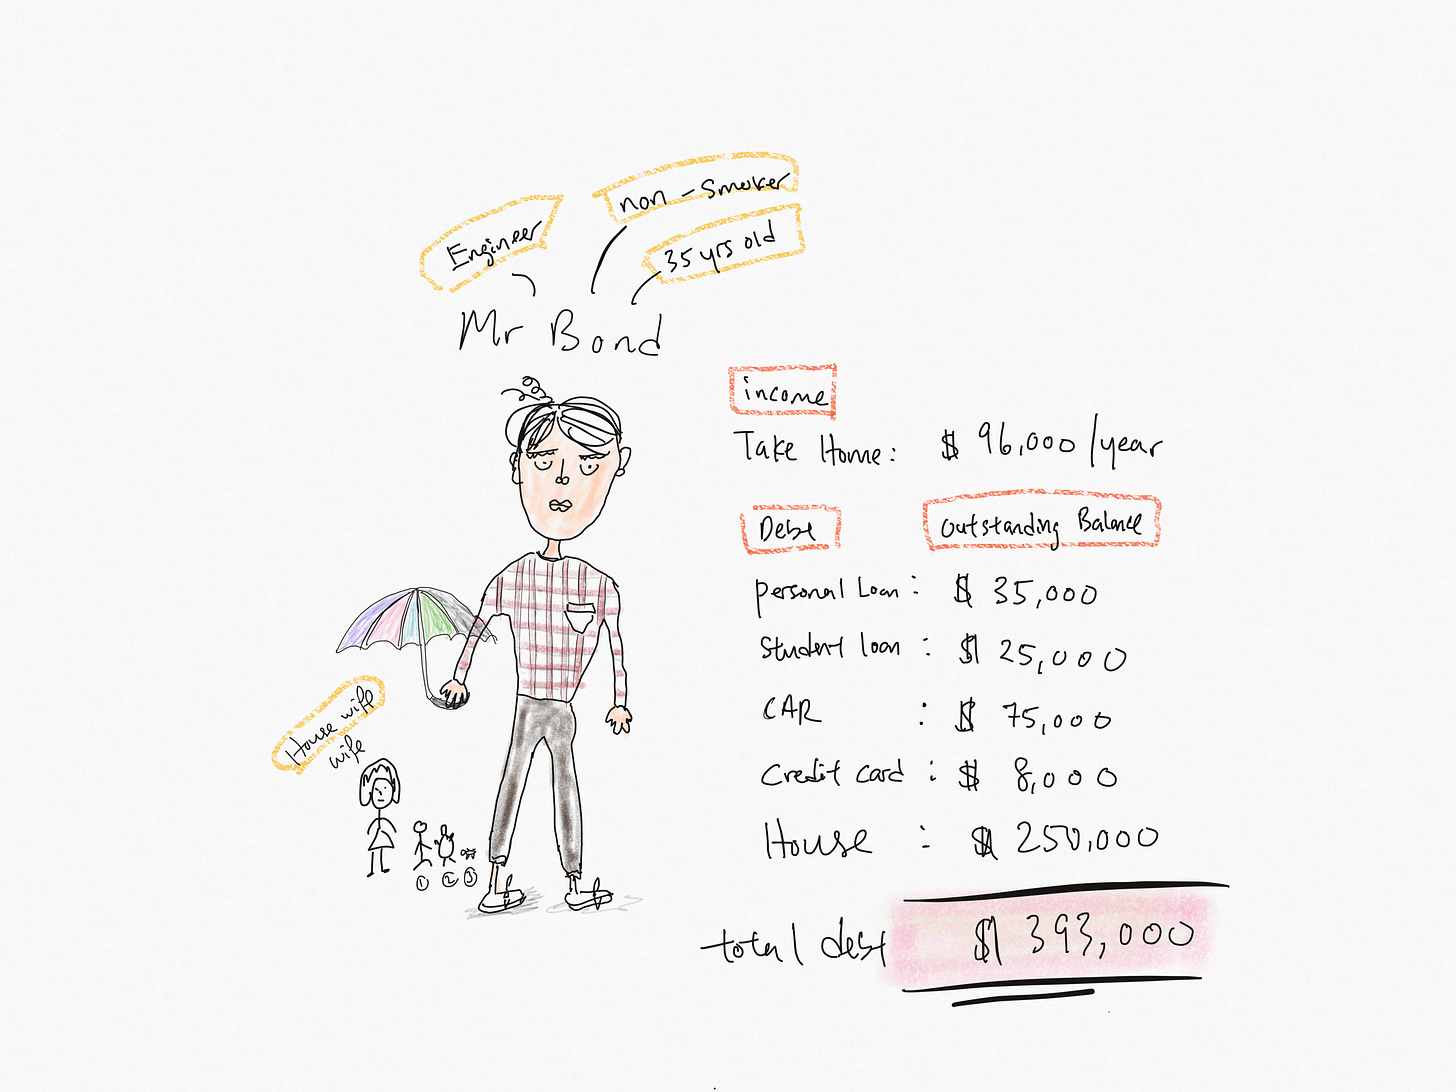 non - smoker
Engineer
35 yrs old
Mr Bond
income
Take Home: $ 96,000 /year
Debt Outstanding Balance
personal Loan: $ 35,000
Student loan: $ 25,000
CAR : $ 75,000
Credit card : $ 8,000
House : $ 250,000
total debt $ 393,000
House wife
wife
1 2 3